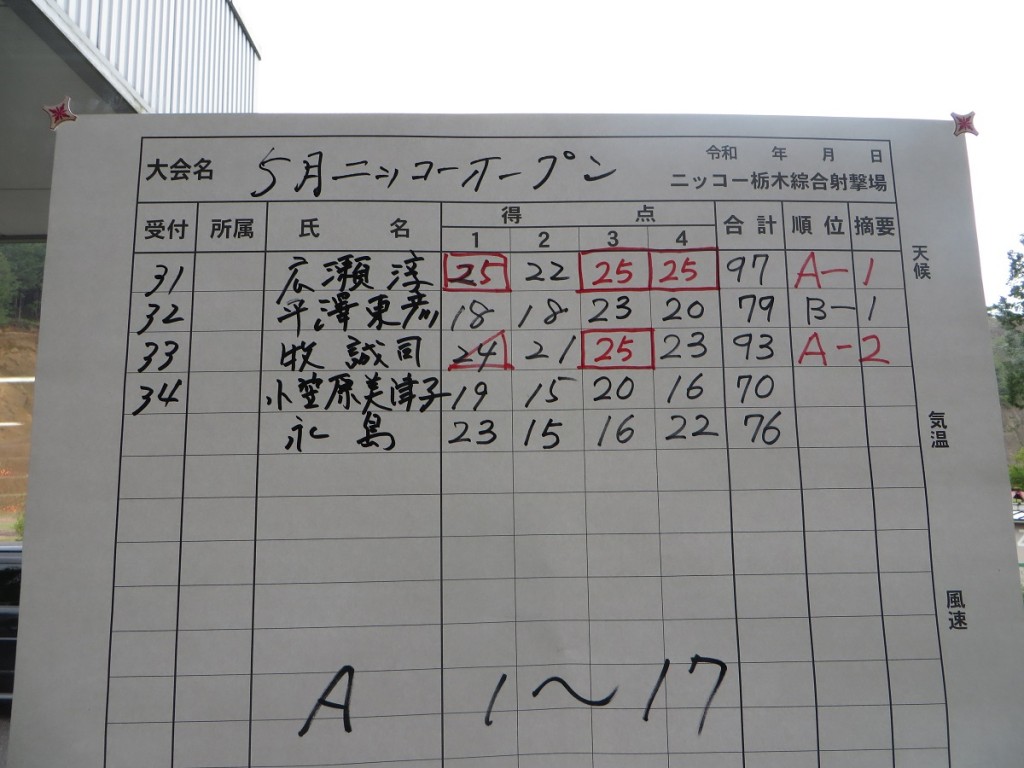 令和 年 月 日
大会名 5月ニッコーオープン ニッコー栃木綜合射撃場
受付 所属 氏 名 得 点 合計 順位 摘要
1 2 3 4
天候
31 広瀬 淳 25 22 25 25 97 A-1
32 平澤東彦 18 18 23 20 79 B-1
33 牧 誠司 24 21 25 23 93 A-2
34 小笠原美津子 19 15 20 16 70
永島 23 15 16 22 76
気温
風速
A 1〜17